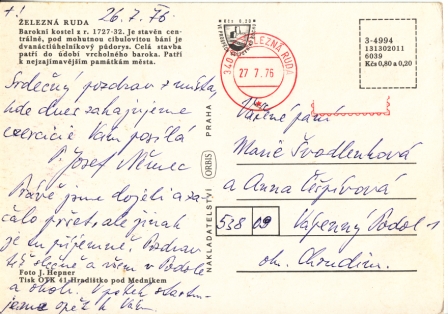 26.7.76
ŽELEZNÁ RUDA
Barokní kostel z r. 1727-32. Je stavěn cen-
trálně, pod mohutnou cibulovitou bání je
dvanáctiúhelníkový půdorys. Celá stavba
patří do údobí vrcholného baroka. Patří
k nejzajímavějším památkám města.
Srdečný pozdrav z místa,
kde dnes zahajujeme
exercicie Vám posílá
P. Josef Němec
Právě jsme dojeli a za-
čalo pršet, ale jinak
je tu příjemně. Pozdrav
též slečně a všem v Podole
a okolí. V pátek
jsme opět k Vám
Foto J. Hepner
Tisk OTK 41 Hradištko pod Medníkem
NAKLADATELSTVÍ ORBIS PRAHA
340 ŽELEZNÁ RUDA
27.7.76
3-4994
131302011
6039
Kčs 0,80 a 0,20
Vážené paní
Marie Švadlenková
a Anna Čejpivová
538 09 Vápenný Podol 1
ok. Chrudim.